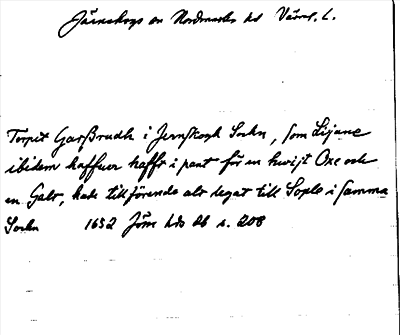 Järnskogs sn Nordmarks hd Värml. l.
Torpit Garßrudh i Jernskogh Sockn, som Lijane
ibidem haffuer hafft i pant för en hwijt Oxe och
en Galt, hade tillförende alt legat till Sopla i samma
Sockn 1652 Jösse hds db s. 208